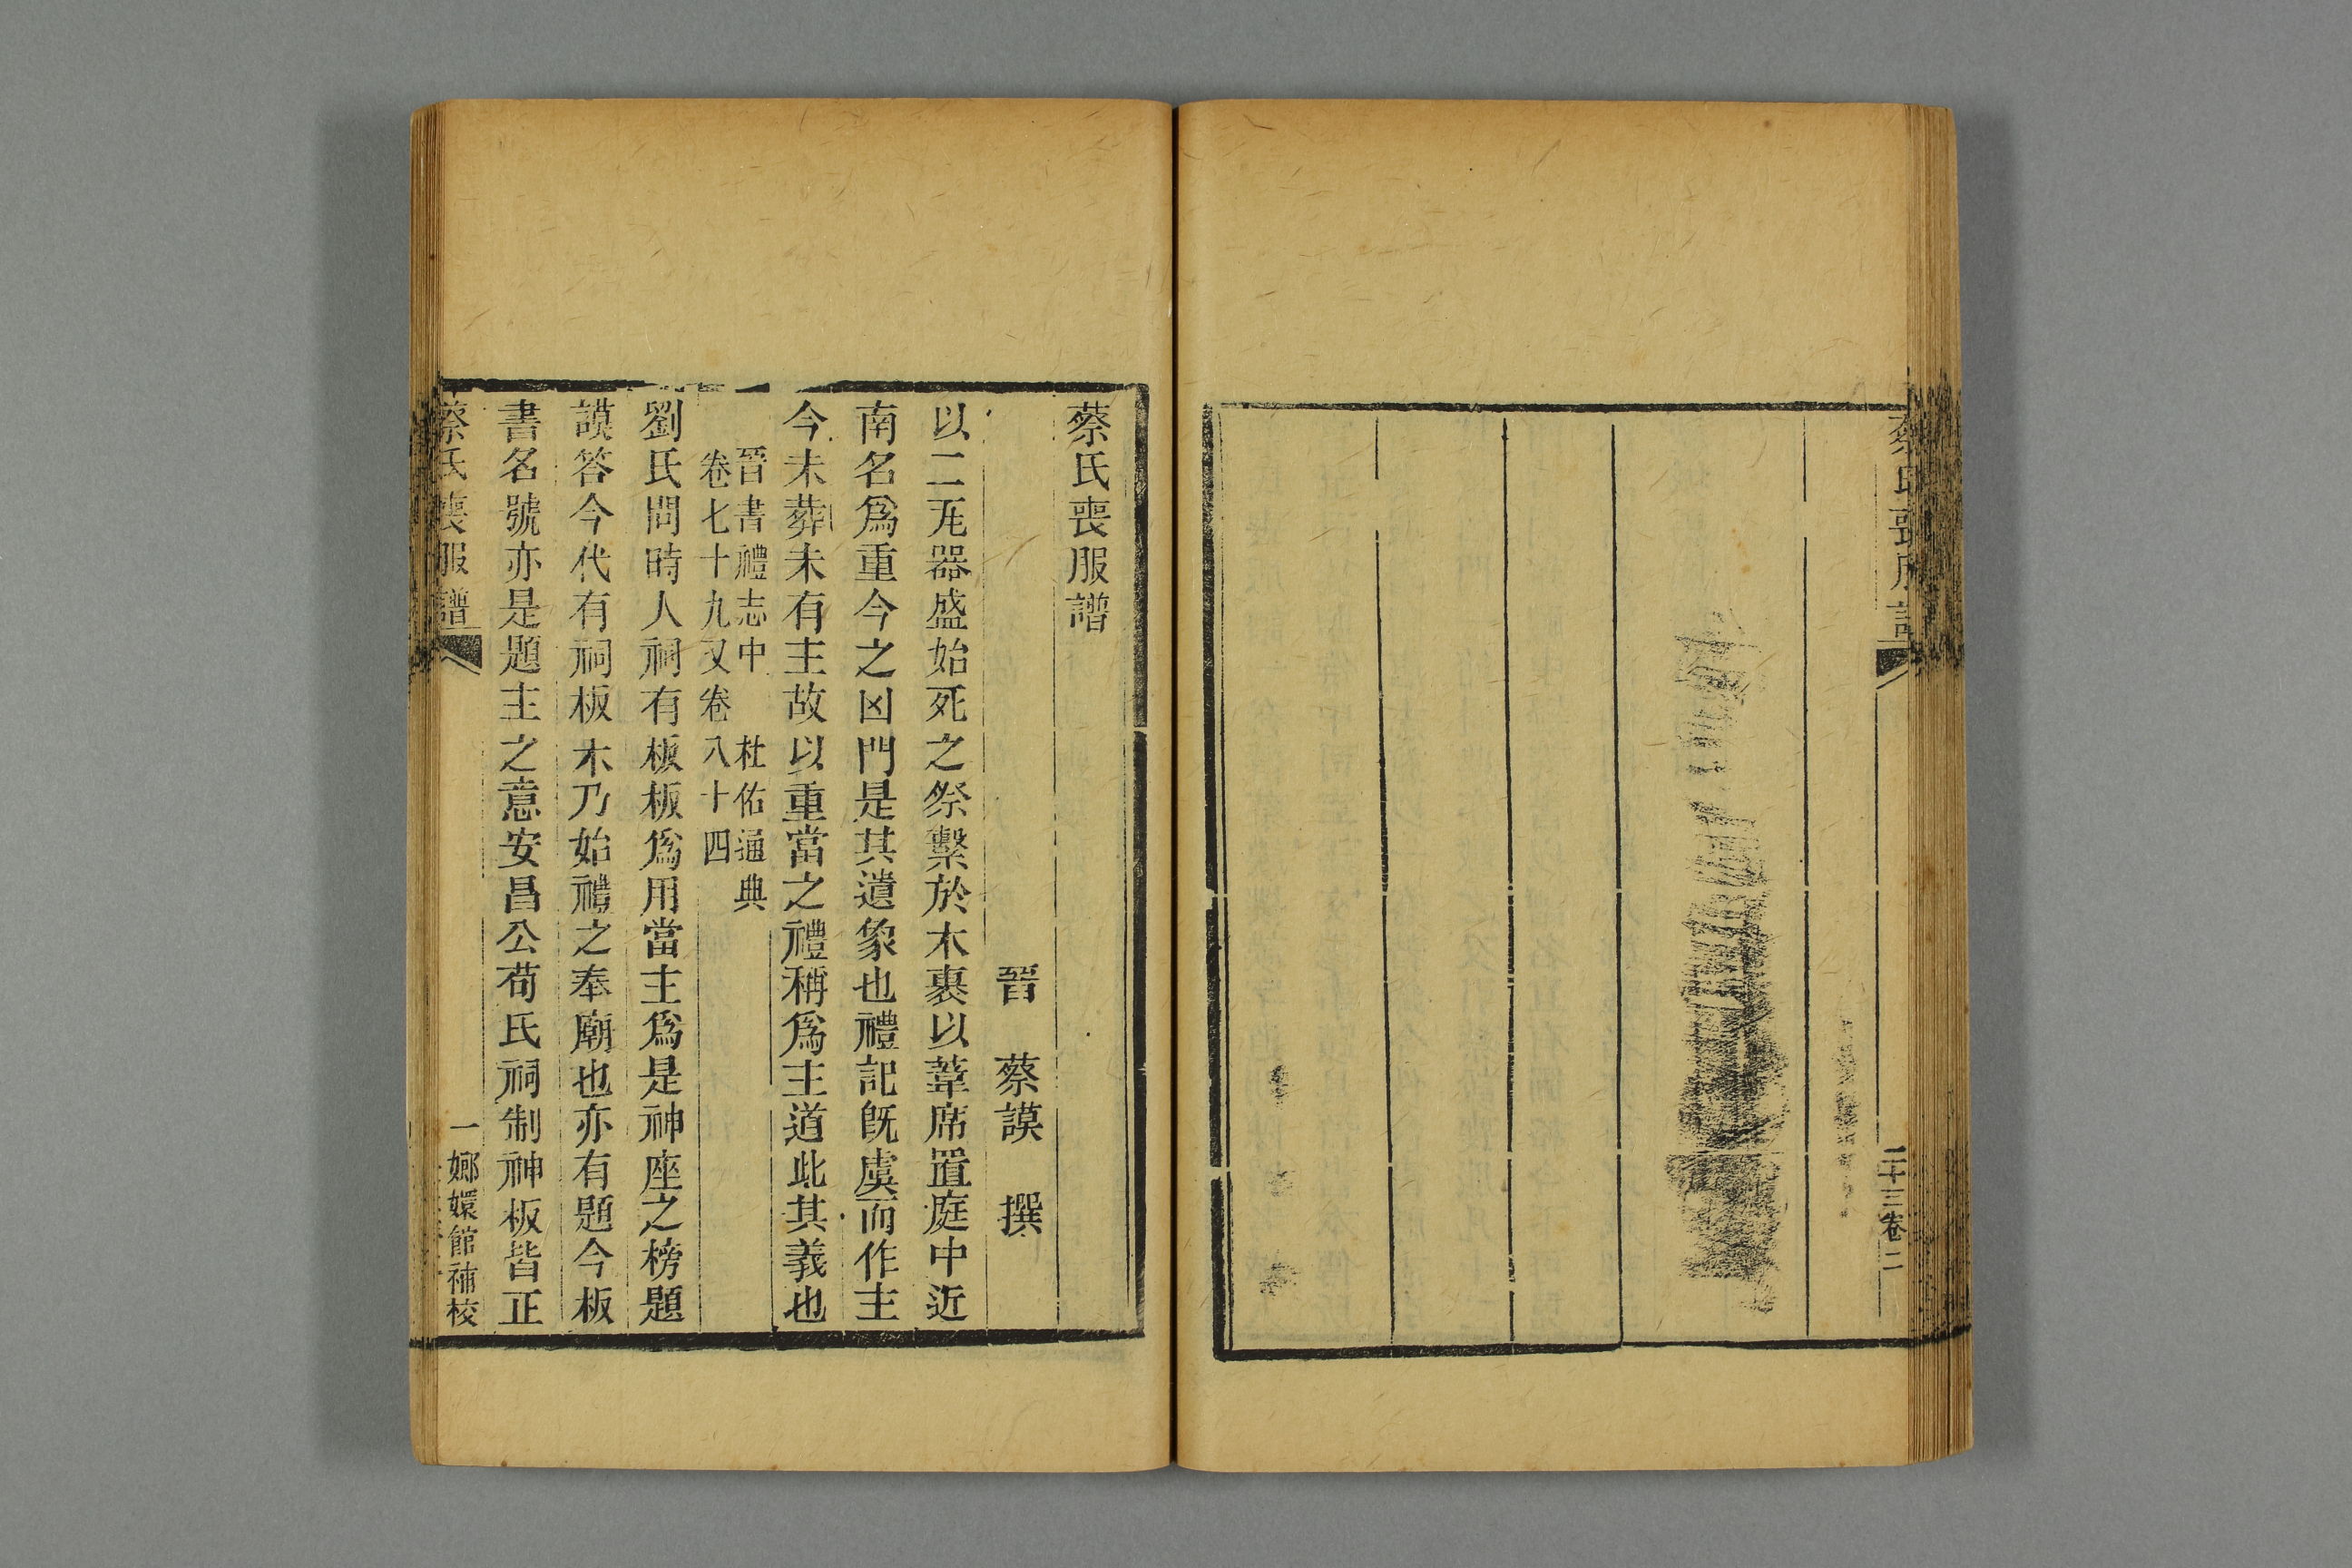 蔡氏喪服譜
二十三卷二
蔡氏喪服譜
晉 蔡謨 撰
以二瓦器盛始死之祭繫於木裹以葦席置庭中近
南名爲重今之凶門是其遺象也禮記旣虞而作主
今未葬未有主故以重當之禮稱爲主道此其義也
晉書禮志中 杜佑通典
卷七十九又卷八十四
劉氏問時人祠有板板爲用當主爲是神座之榜題
謨答今代有祠板木乃始禮之奉廟也亦有題今板
書名號亦是題主之意安昌公荀氏祠制神板皆正
蔡氏喪服譜
一 嫏嬛館補校